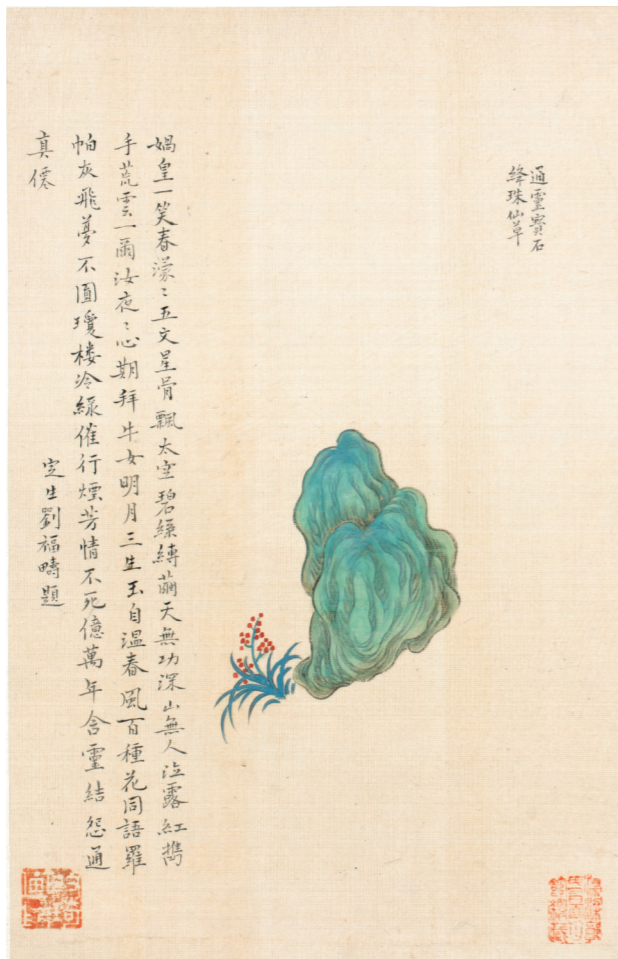 通靈寶石
絳珠仙草
媧皇一笑春濛〻五文星骨飄太空碧縛繭天無功深山無人泣露紅攜
手荒雲一爾汝夜〻心期拜牛女明月三生玉自溫春風百種花同語羅
帕灰飛夢不圓瓊楼冷綠催行煙芳情不死億萬年含靈結怨通
真僊
定生劉福疇題